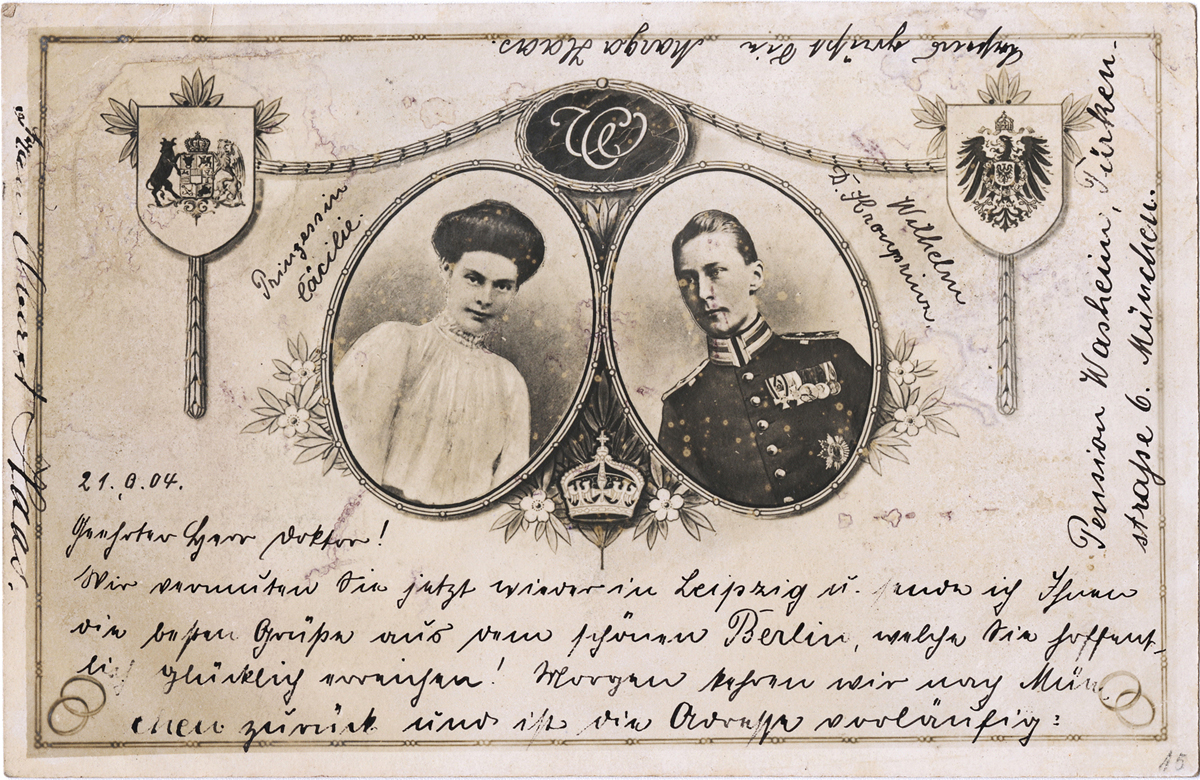 WC
Prinzessin
Cäcilie.
Wilhelm
D. Kronprinz.
21. 04.
Geehrter Herr Doktor!
Wir vermuten Sie jetzt wieder in Leipzig u. sende ich Ihnen
die besten Grüße aus dem schönen Berlin, welche Sie hoffent-
lich glücklich erreichen! Morgen kehren wir nach Mün
chen zurück und ist die Adresse vorläufig:
Pension Washeim, Türken-
straße 6. München.
grüßt Sie Marga Haas.
Haas.
15